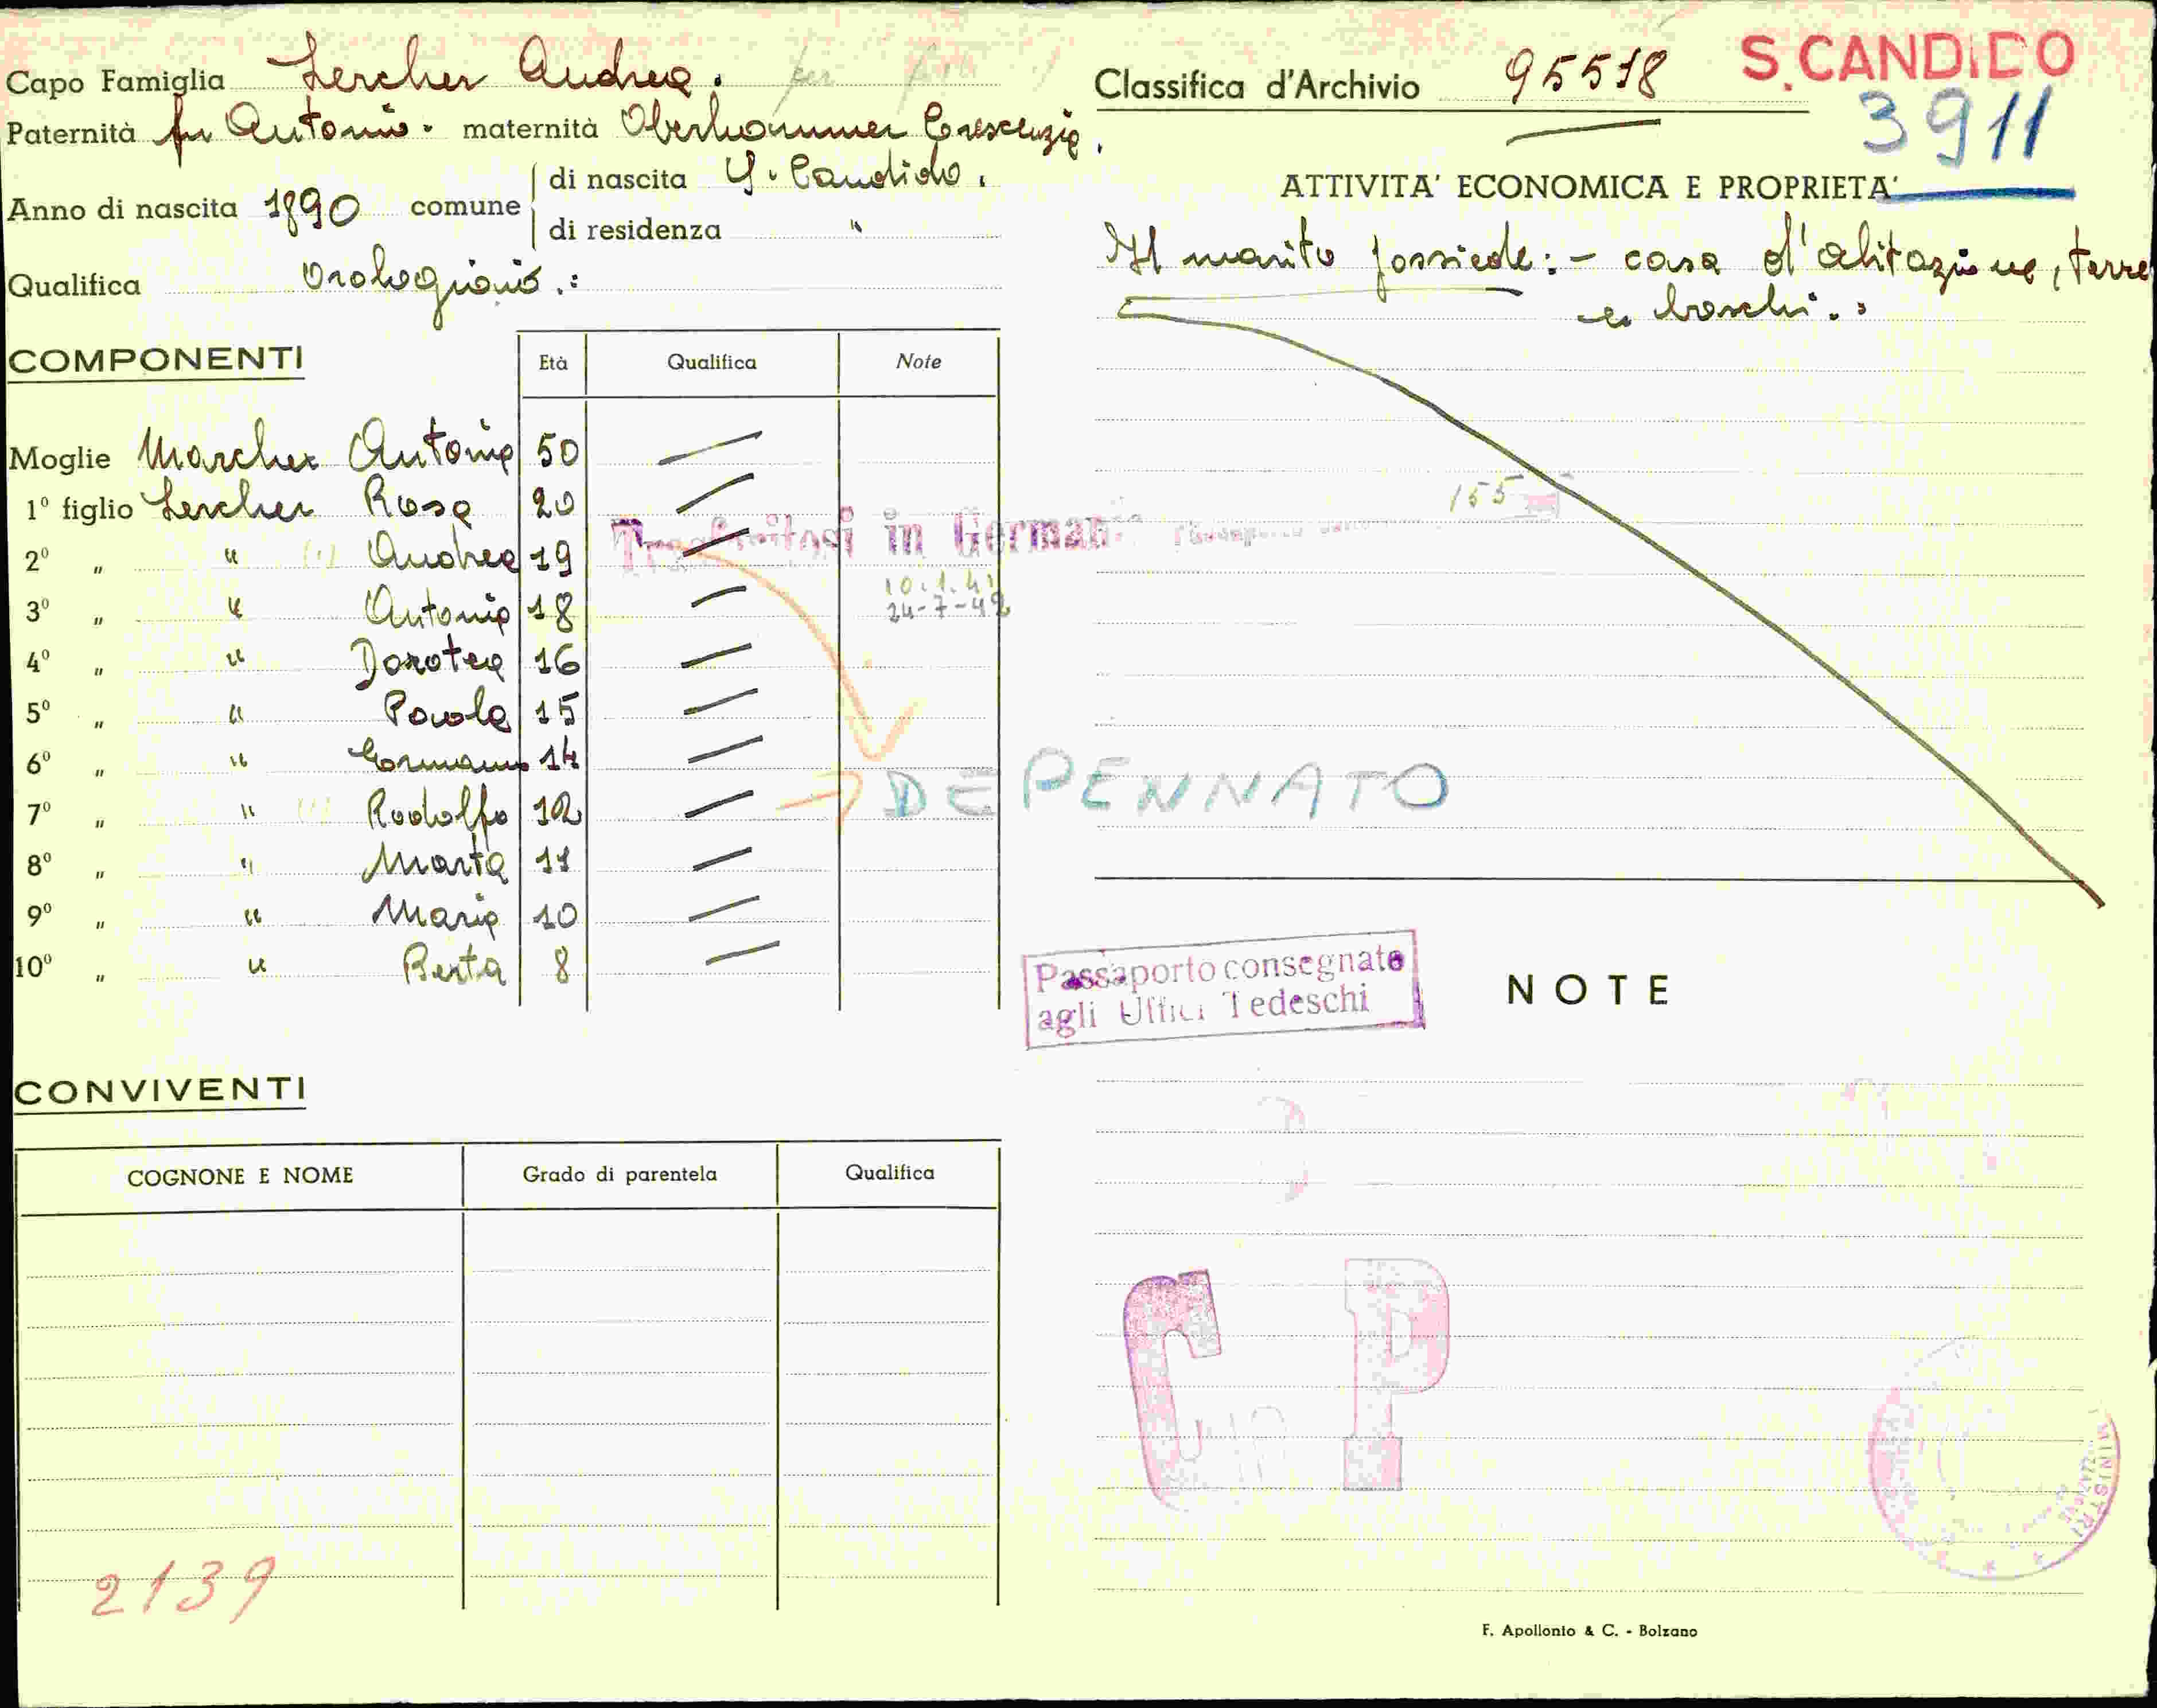 Capo Famiglia Lercher Andrea.
Paternità fu Antonio. maternità Oberhammer Crescenzia.
Anno di nascita 1890 comune di nascita S. Candido.
di residenza "
Qualifica Orologiaio.:
COMPONENTI Età Qualifica Note
Moglie Marcher Antonia 50
1º figlio Lercher Rosa 20
2º " " Andrea 19
Trasferitosi in German
3º " " Antonia 18
10.1.41
24-7-42
4º " " Dorotea 16
5º " " Paola 15
6º " " Germano 14
7º " " Rodolfo 12
→ DEPENNATO
8º " " Marta 11
9º " " Maria 10
10º " " Berta 8
CONVIVENTI
COGNONE E NOME Grado di parentela Qualifica
2139
Classifica d'Archivio 95518
S.CANDIDO
3911
ATTIVITA' ECONOMICA E PROPRIETA'
Il marito possiede: - casa d'abitazione, terre
e boschi..
155
Passaporto consegnato
agli Uffici Tedeschi
NOTE
C P
MINISTRI
F. Apollonio & C. - Bolzano